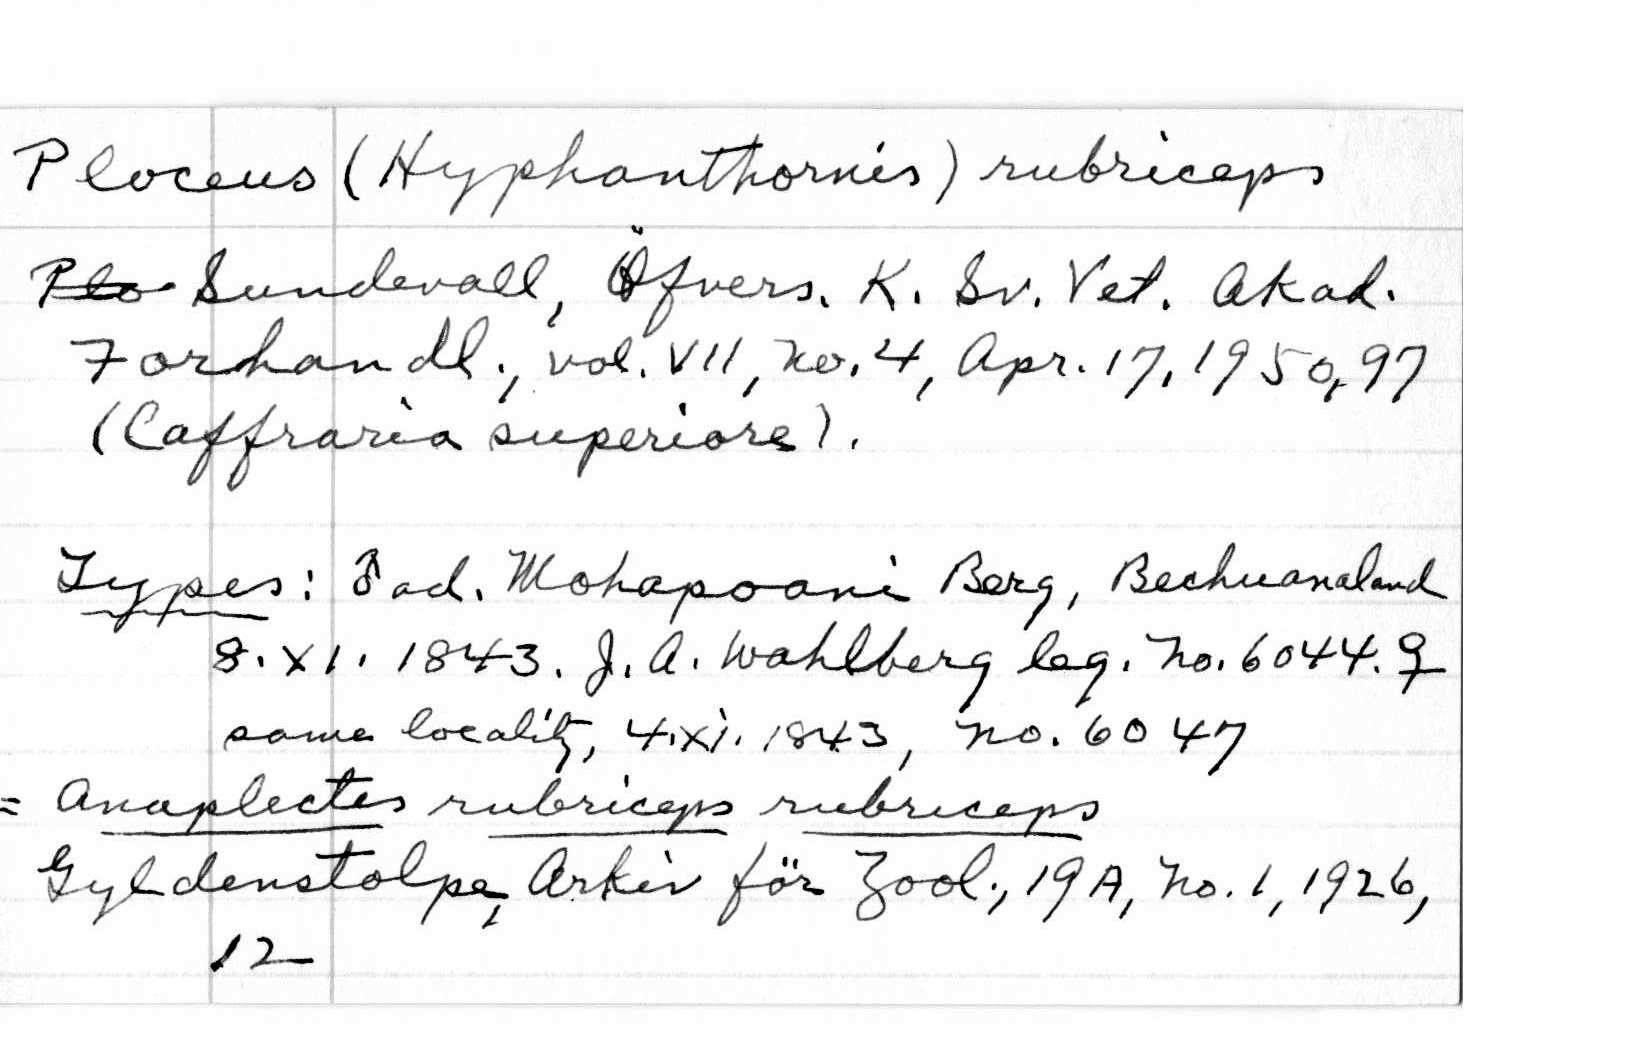 Ploceus (Hyphanthornis) rubriceps
Plo Sundevall, Öfvers. K. Sv. Vet. Akad.
Forhandl., vol. VII, no. 4, Apr. 17, 1950, 97
(Caffraria superiore).
Types: ♂ ad. Mohapoani Berg, Bechuanaland
8. XI. 1843. J. A. Wahlberg leg. No. 6044. ♀
same locality, 4.xi. 1843, no. 6047
= Anaplectes rubriceps rubriceps
Gyldenstolpe, Arkiv för Zool., 19A, No. 1, 1926,
12